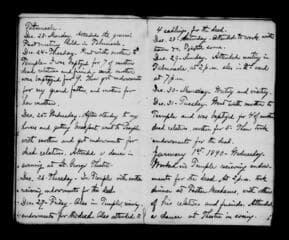 Petuncula.
Dec. 23 - Monday. Attended the general
Priesthood meeting held in
Dec. 24 - Tuesday. Went with mother to
Temple. I was baptized for 7 of mothers
dead relatives and friends and mother
was baptized for 4. Then got endowments
for my grand father, and mother for
her mother.
Dec. 25 Wednesday. After attending to my
horses and getting breakfast went to Temple
with mother and got endowments for
dead relatives. Attended a dance in
evening at St. George Theatre.
Dec. 26 Thursday. In Temple with mother
receiving endowments for the dead.
Dec. 27 - Friday. Also in Temple
endowments for the dead. Also attended to
4 sealings for the dead.
Dec. 28 - Saturday. Attended to work with
team
Dec. 29 - Sunday. Attended meeting in
Tabernacle at 2 p.m. also in 4th ward
at 7 p.m.
Dec. 30 - Monday.
Dec. 31 - Tuesday. Went with mother to
Temple and was baptized for 4 of mothers
dead relatives, mother for 5. Then took
endowments for the dead.
January 1st 1890 - Wednesday.
Worked in Temple receiving endow-
ments for the dead. At 2 p.m. took
dinner at with some
of his relatives and friends. Attended
a dance at Theatre in evening.